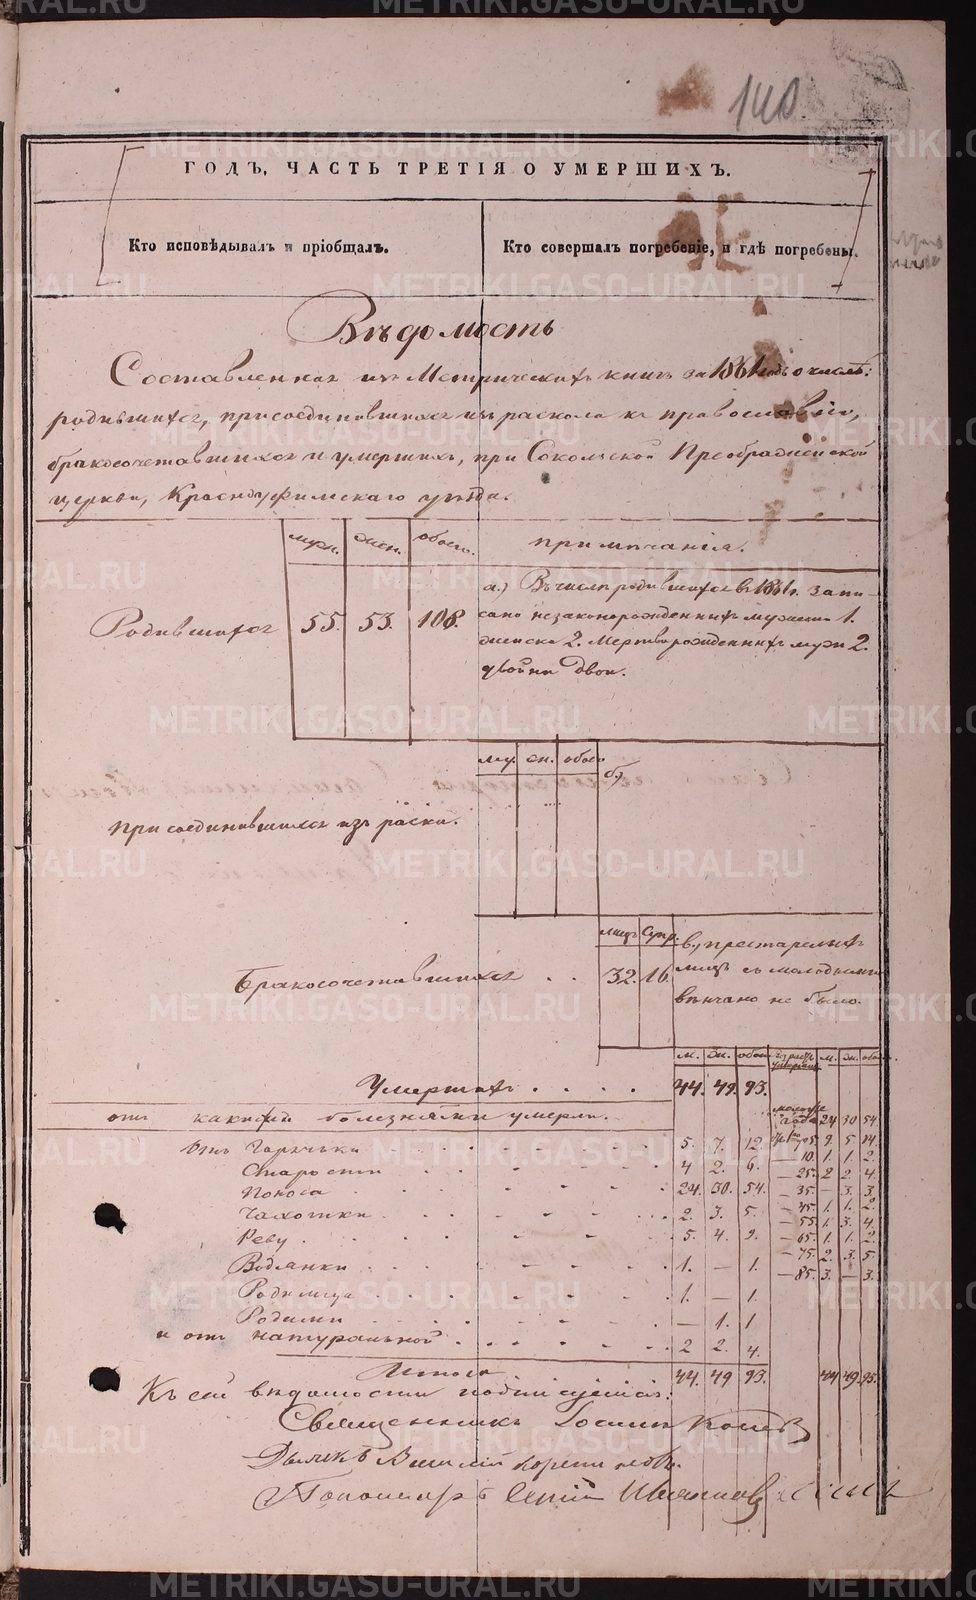 140
ГОДЪ, ЧАСТЬ ТРЕТІЯ О УМЕРШИХЪ.
Кто исповѣдывалъ и пріобщалъ.
Кто совершалъ погребеніе, и гдѣ погребены.
Вѣдомость
Составленная изъ Метрическихъ книгъ за 1861 годъ о числѣ:
родившихся, присоединившихся изъ раскола къ православію,
бракосочетавшихся и умершихъ, при Сокольской Преображенской
церкви, Красноуфимскаго уѣзда.
муж. жен. обоего. примѣчанія.
Родившихся 55. 53. 108.
а.) Въ числѣ родившихся въ 1861 г. запи-
сано незаконорожденныхъ мужеска 1.
женска 2. Мертворожденныхъ муж 2.
двойни двои.
му. жн. обоего б)
присоединившихся изъ раск.
лицъ Супр.
Бракосочетавшихся . . 32. 16.
в., престарелыхъ
лицъ съ молодыми
вѣнчано не было.
м. жн. обое умершихъ м. жн. обое.
Умершихъ . . . . 44. 49. 93.
отъ какихъ болезнями умерли.
года 24 30 54.
Отъ Горячки 5. 7. 12. 5. 9. 5 14
— 10. 1. 1. 2.
Старости 4 2. 6. — 25. 2 2. 4.
Поноса 24. 30. 54. — 35. — 3. 3.
Чахотки 2. 3. 5. — 45. 1. 1. 2.
— 55. 1. 3. 4.
Реву 5. 4. 9. — 65. 1. 1. 2.
— 75. 2. 3. 5.
Водянки 1. — 1. — 85. 3. — 3.
Родимца 1. — 1.
Родами — 1. 1
и отъ натуральной 2 2. 4.
Итого 44. 49 93. 44 49 93.
Къ сей вѣдомости подписуемся:
Священникъ Іоаннъ
Дьякъ Василій
Пономарь
METRIKI.GASO-URAL.RU